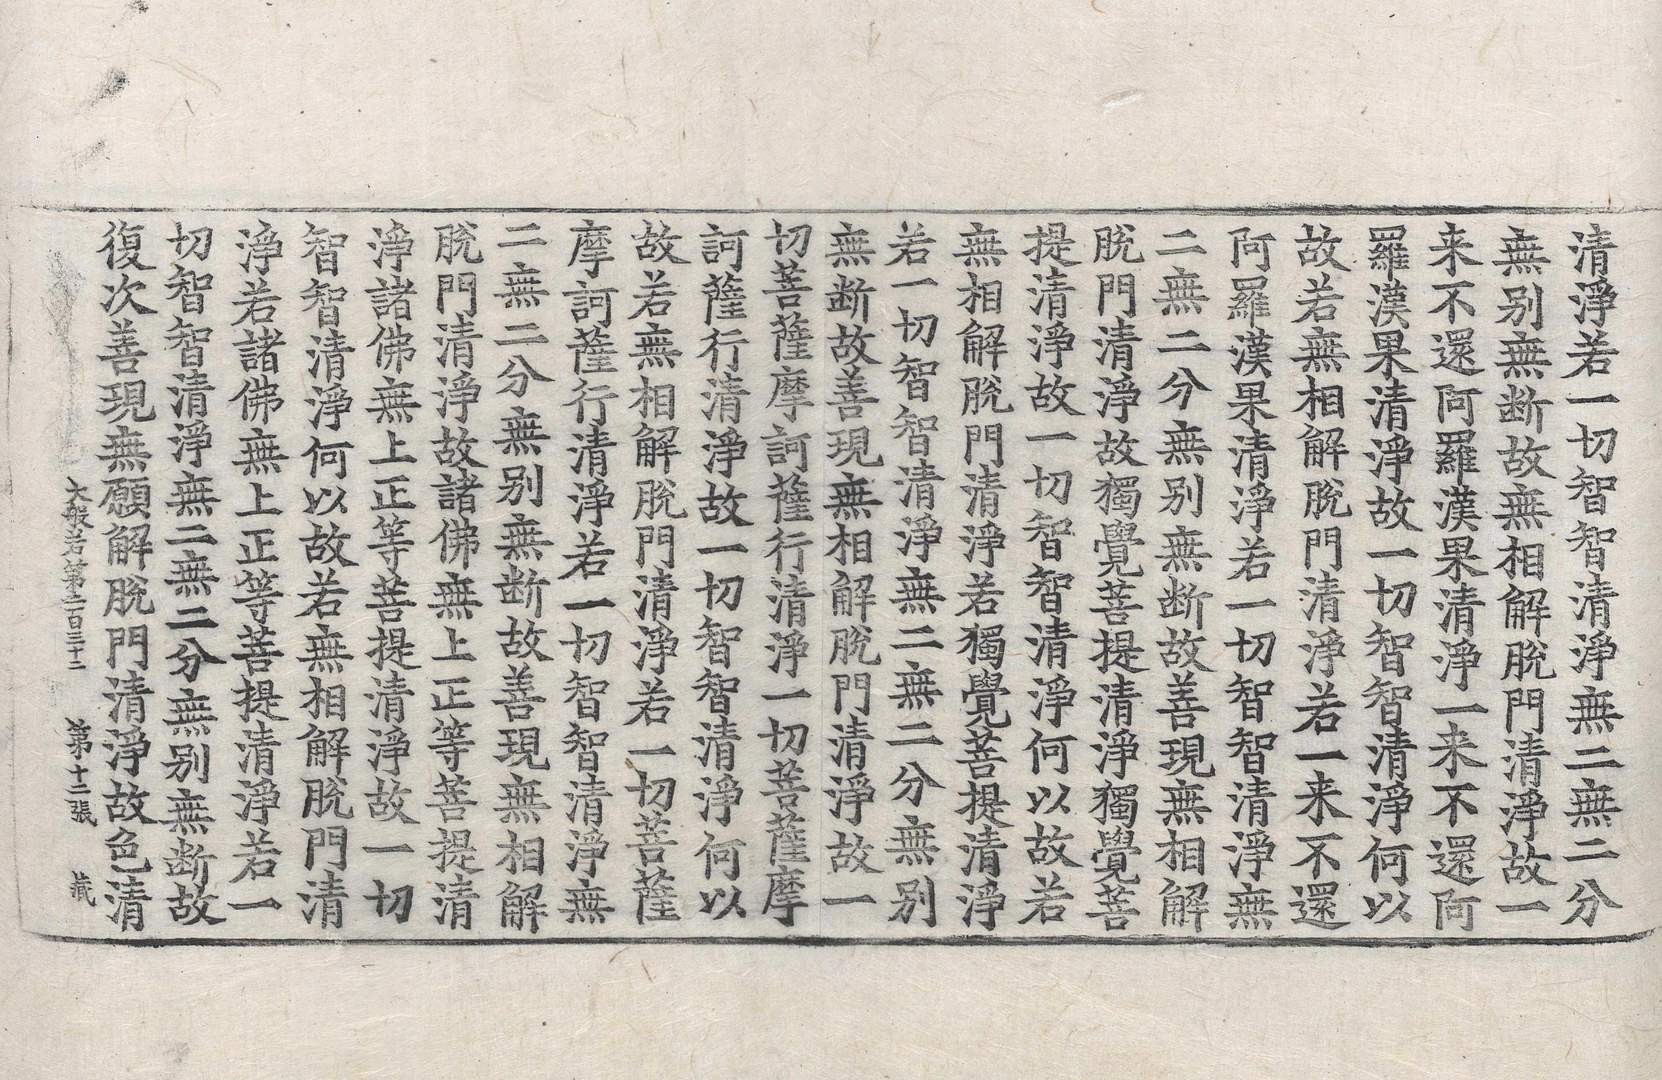 清淨若一切智智清淨無二無二分
無別無断故無相解脫門清淨故一
来不還阿羅漢果清淨一来不還阿
羅漢果清淨故一切智智清淨何以
故若無相解脫門清淨若一来不還
阿羅漢果清淨若一切智智清淨無
二無二分無別無断故善現無相解
脫門清淨故獨覺菩提清淨獨覺菩
提清淨故一切智智清淨何以故若
無相解脫門清淨若獨覺菩提清淨
若一切智智清淨無二無二分無別
無断故善現無相解脫門清淨故一
切菩薩摩訶薩行清淨一切菩薩摩
訶薩行清淨故一切智智清淨何以
故若無相解脫門清淨若一切菩薩
摩訶薩行清淨若一切智智清淨無
二無二分無別無断故善現無相解
脫門清淨故諸佛無上正等菩提清
淨諸佛無上正等菩提清淨故一切
智智清淨何以故若無相解脫門清
淨若諸佛無上正等菩提清淨若一
切智智清淨無二無二分無別無断故
復次善現無願解脫門清淨故色清
大般若第二百三十二 第十二張 藏